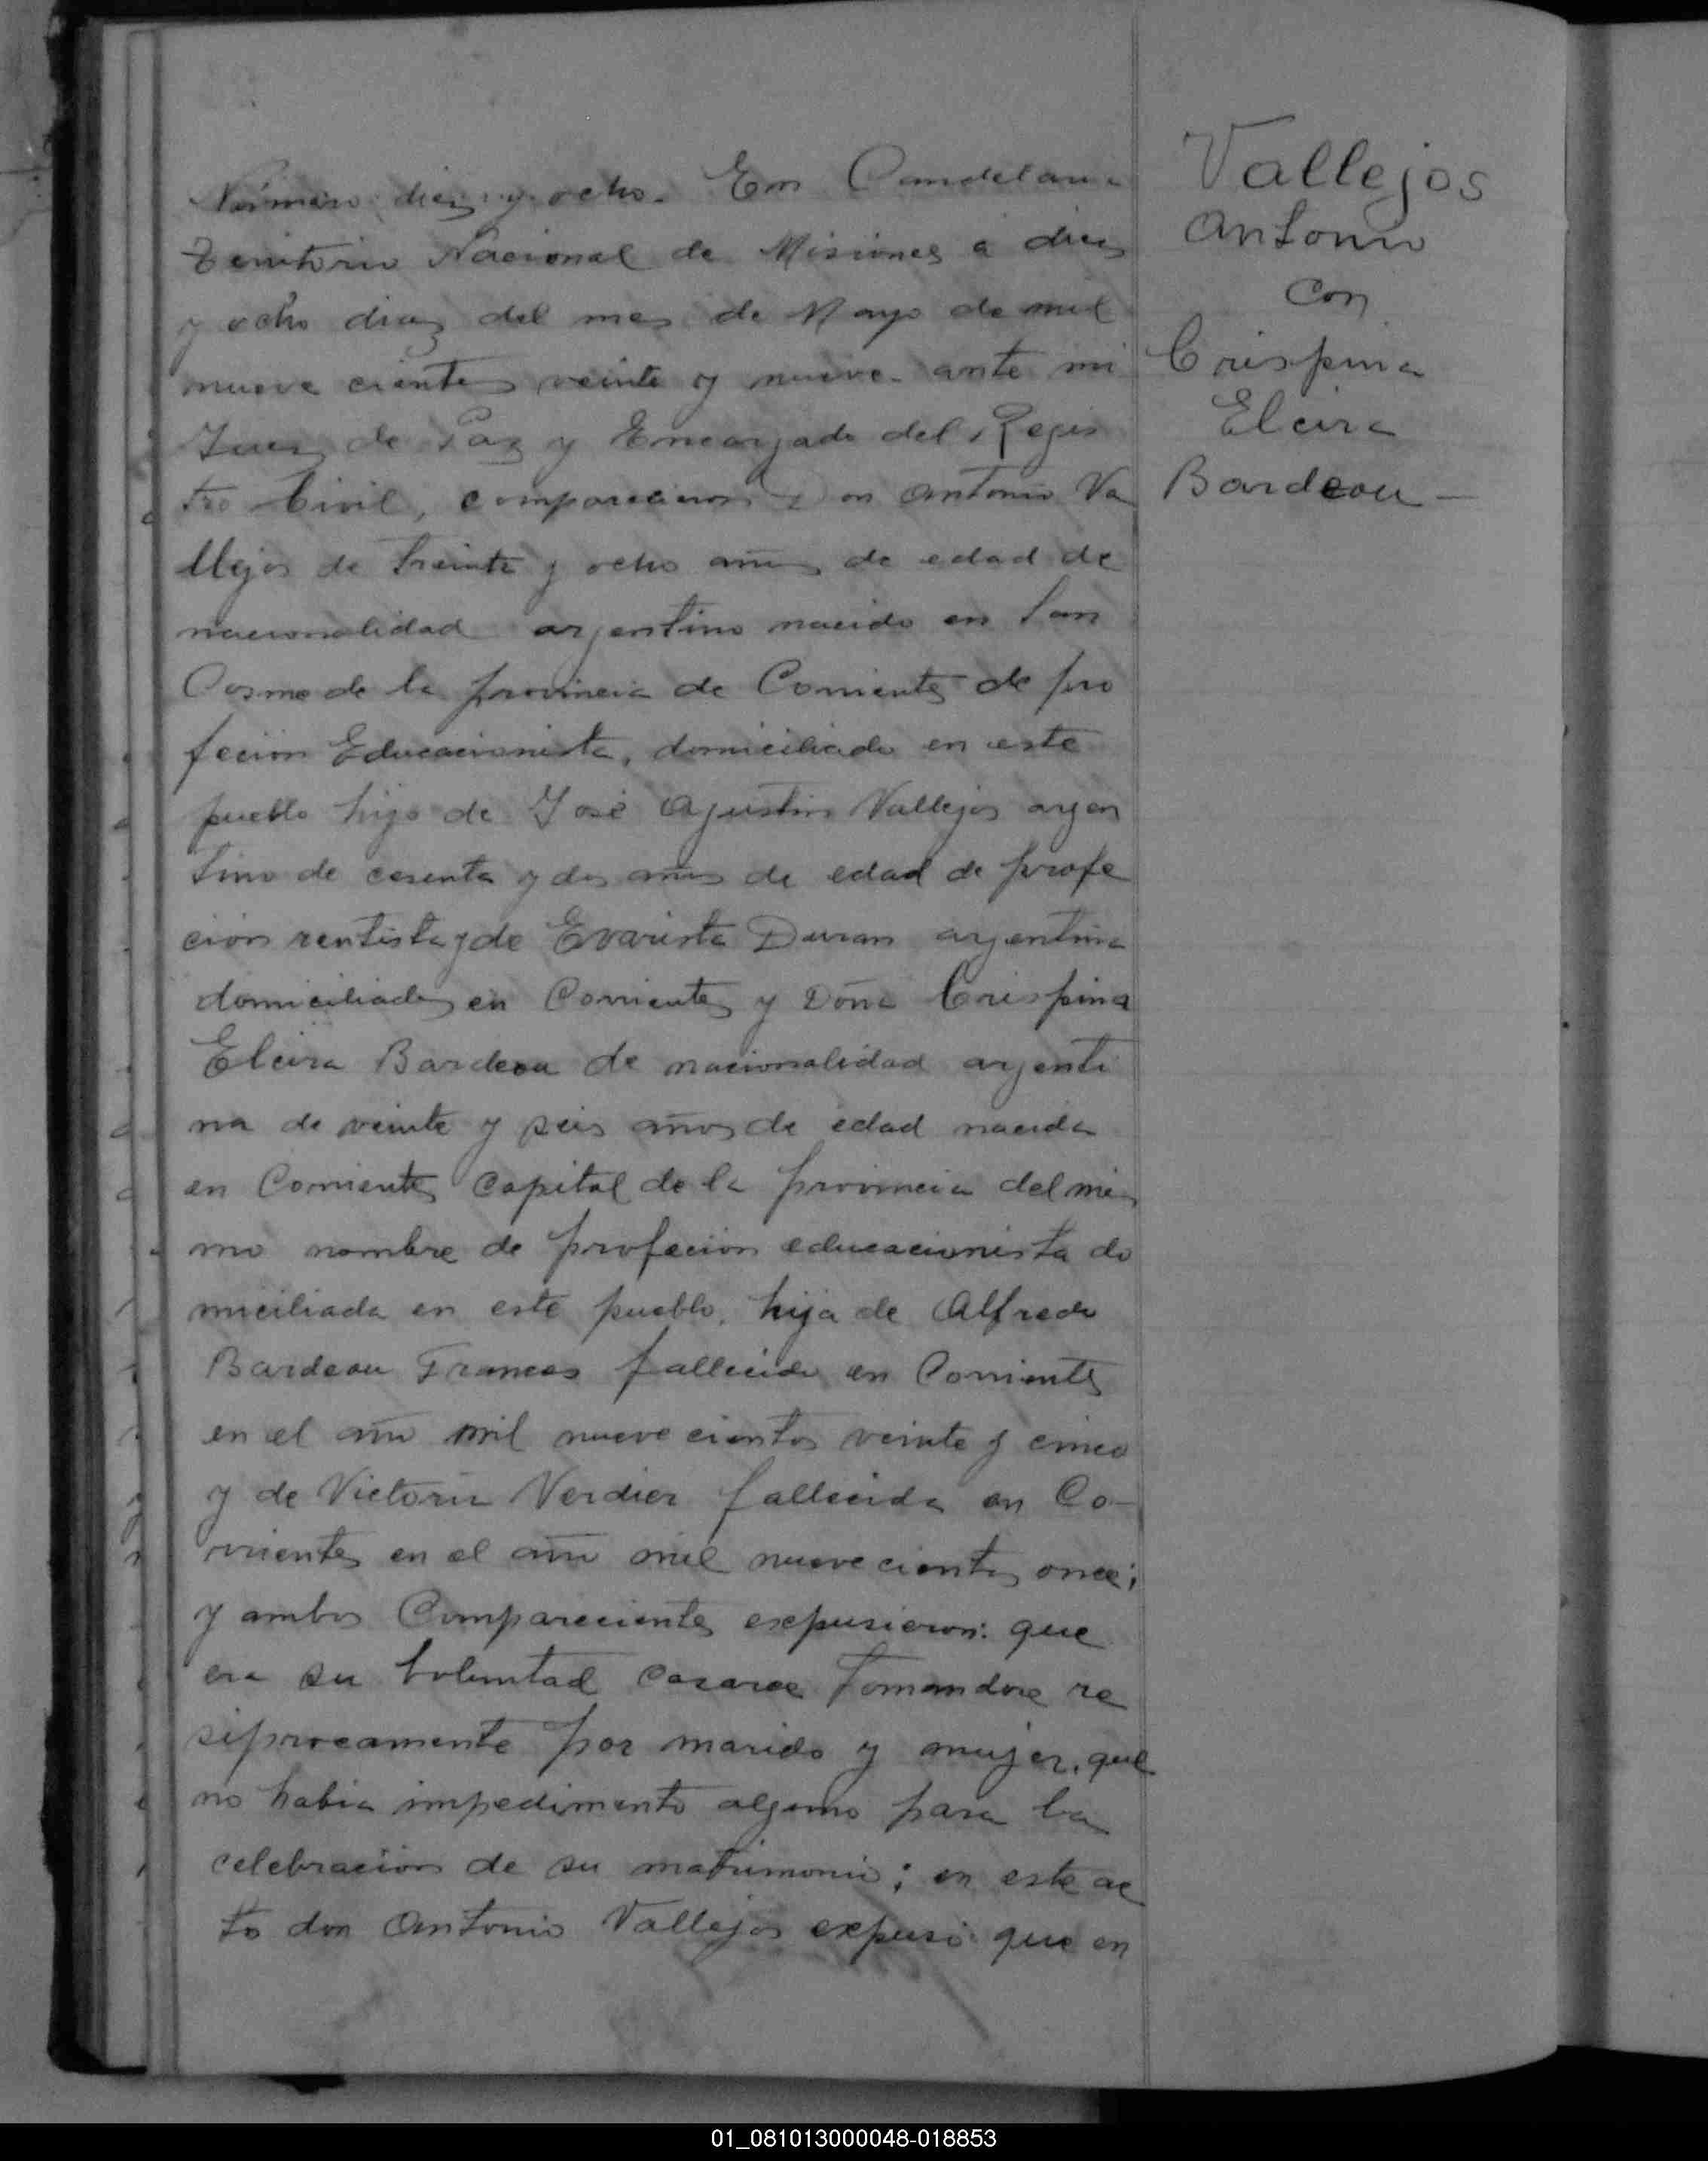 Número diez y ocho. En Candelaria
Territorio Nacional de Misiones a diez
y ocho dias del mes de Mayo de mil
nueve cientos veinte y nueve. ante mi
Juez de Paz y Encargado del Regis
tro Civil, comparecieron Don Antonio Va
llejos de treinta y ocho años de edad de
nacionalidad argentino nacido en San
Cosme de la provincia de Corrientes de pro
fecion Educacionista, domiciliado en este
pueblo hijo de José Agustin Vallejos argen
tino de cesenta y dos años de edad de profe
cion rentista y de Evarista Duran argentina
domiciliados en Corrientes y Doña Crispina
Elcira Bardeau de nacionalidad argenti
na de veinte y seis años de edad nacida
en Corrientes Capital de la provincia del mis
mo nombre de profecion educacionista do
miciliada en este pueblo, hija de Alfredo
Bardeau Frances fallecido en Corrientes
en el año mil nueve cientos veinte y cinco
y de Victoria Verdier fallecida en Co-
rrientes en el año mil nueve cientos once;
y ambos Comparecientes expusieron: que
era su boluntad casarce tomandose re
siprocamente por marido y mujer, que
no habia impedimento alguno para la
celebracion de su matrimonio; en este ac
to don Antonio Vallejos expuso: que en
Vallejos
Antonio
con
Crispina
Elcira
Bardeau -
01_081013000048-018853